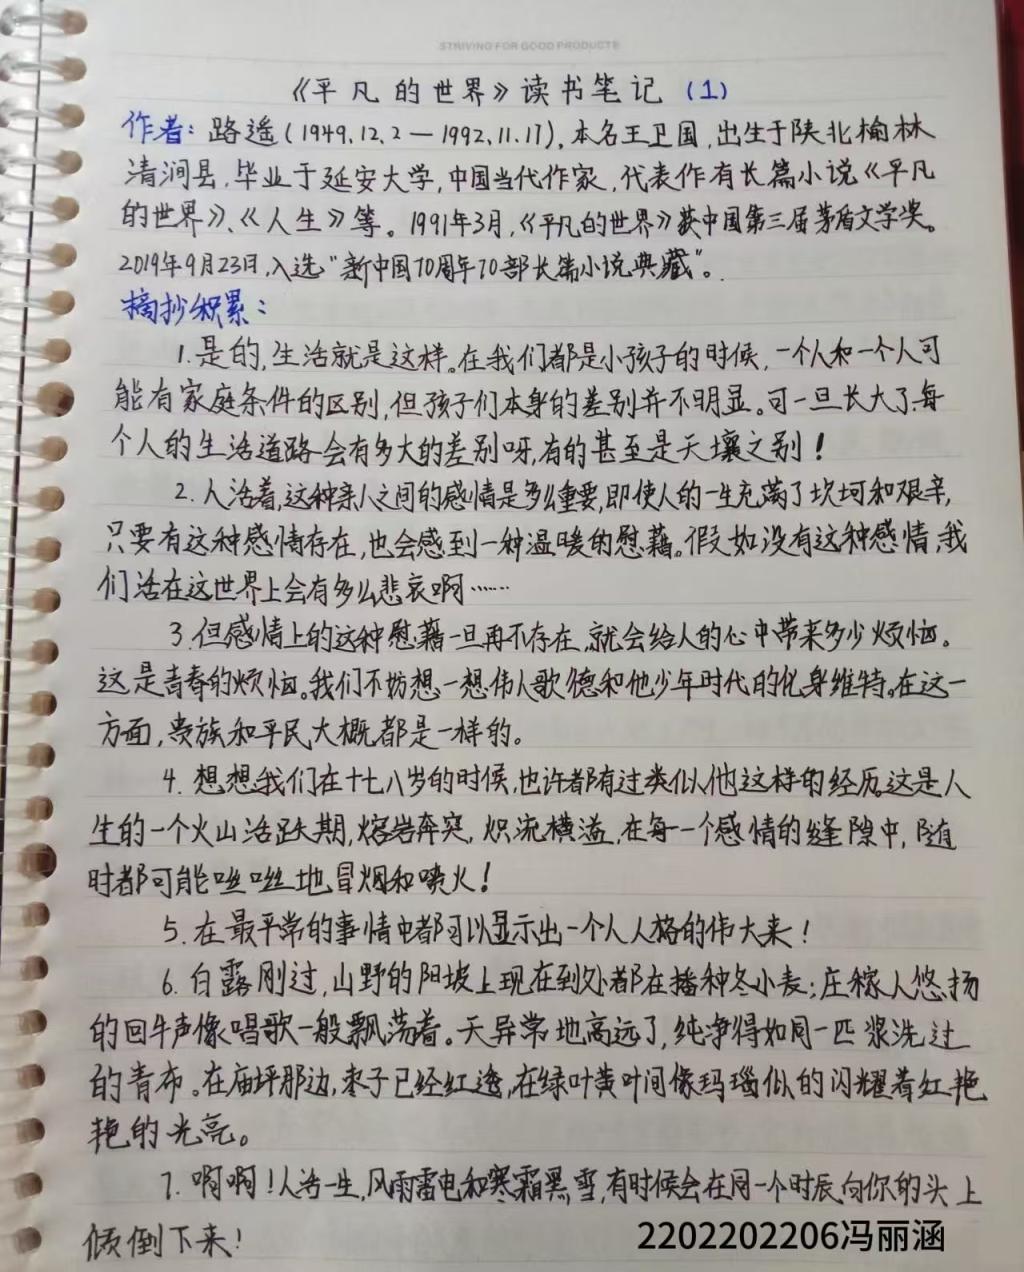 STRIVING FOR GOOD PRODUCTS
《平凡的世界》读书笔记（1）
作者：路遥（1949.12.2—1992.11.17），本名王卫国，出生于陕北榆林
清涧县，毕业于延安大学，中国当代作家，代表作有长篇小说《平凡
的世界》、《人生》等。1991年3月，《平凡的世界》获中国第三届茅盾文学奖。
2019年9月23日，入选“新中国70周年70部长篇小说典藏”。
摘抄积累：
1.是的，生活就是这样。在我们都是小孩子的时候，一个人和一个人可
能有家庭条件的区别，但孩子们本身的差别并不明显。可一旦长大了，每
个人的生活道路会有多大的差别呀，有的甚至是天壤之别！
2.人活着，这种亲人之间的感情是多么重要，即使人的一生充满了坎坷和艰辛，
只要有这种感情存在，也会感到一种温暖的慰藉。假如没有这种感情，我
们活在这世界上会有多么悲哀啊……
3.但感情上的这种慰藉一旦再不存在，就会给人的心中带来多少烦恼。
这是青春的烦恼。我们不妨想一想伟人歌德和他少年时代的化身维特。在这一
方面，贵族和平民大概都是一样的。
4.想想我们在十七八岁的时候，也许都有过类似他这样的经历。这是人
生的一个火山活跃期，熔岩奔突，炽流横溢，在每一个感情的缝隙中，随
时都可能咝咝地冒烟和喷火！
5.在最平常的事情中都可以显示出一个人人格的伟大来！
6.白露刚过，山野的阳坡上现在到处都在播种冬小麦；庄稼人悠扬
的回牛声像唱歌一般飘荡着。天异常地高远了，纯净得如同一匹浆洗过
的青布。在庙坪那边，枣子已经红透，在绿叶黄叶间像玛瑙似的闪耀着红艳
艳的光亮。
7.啊啊！人活一生，风雨雷电和寒霜黑雪，有时候会在同一个时辰向你的头上
倾倒下来！
2202202206冯丽涵